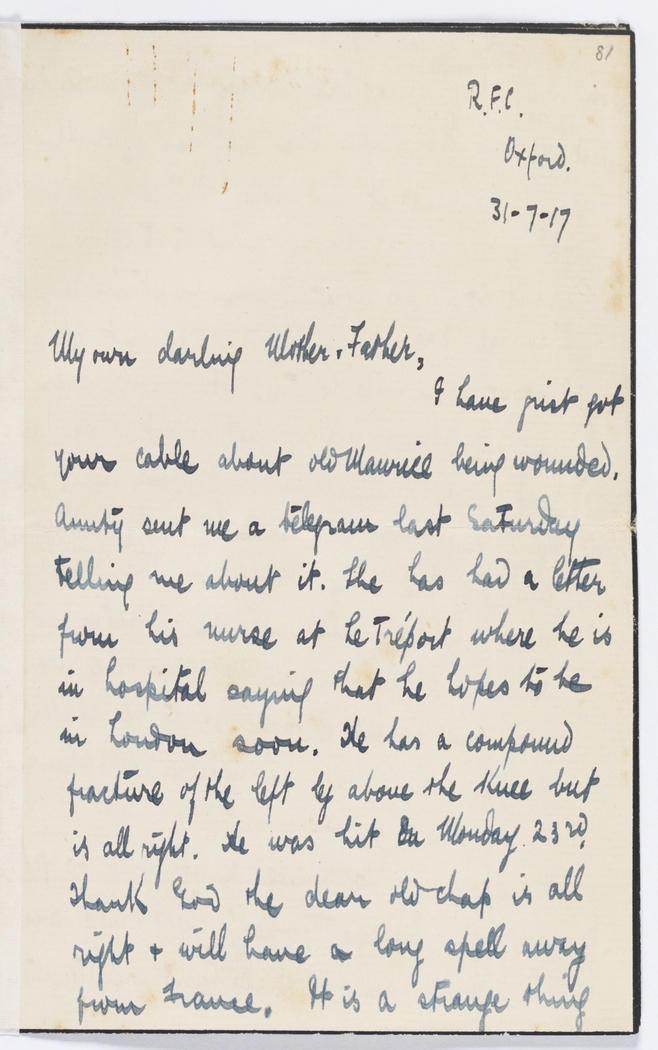 81
R.F.C.
Oxford.
31-7-17
My own darling Mother & Father,
I have just got
your cable about old Maurice being wounded.
Aunty sent me a telegram last Saturday
telling me about it. She has had a letter
from his nurse at Le Tréport where he is
in hospital saying that he hopes to be
in London soon. He has a compound
fracture of the left leg above the knee but
is all right. He was hit on Monday 23rd.
Thank God the dear old chap is all
right & will have a long spell away
from France. It is a strange thing